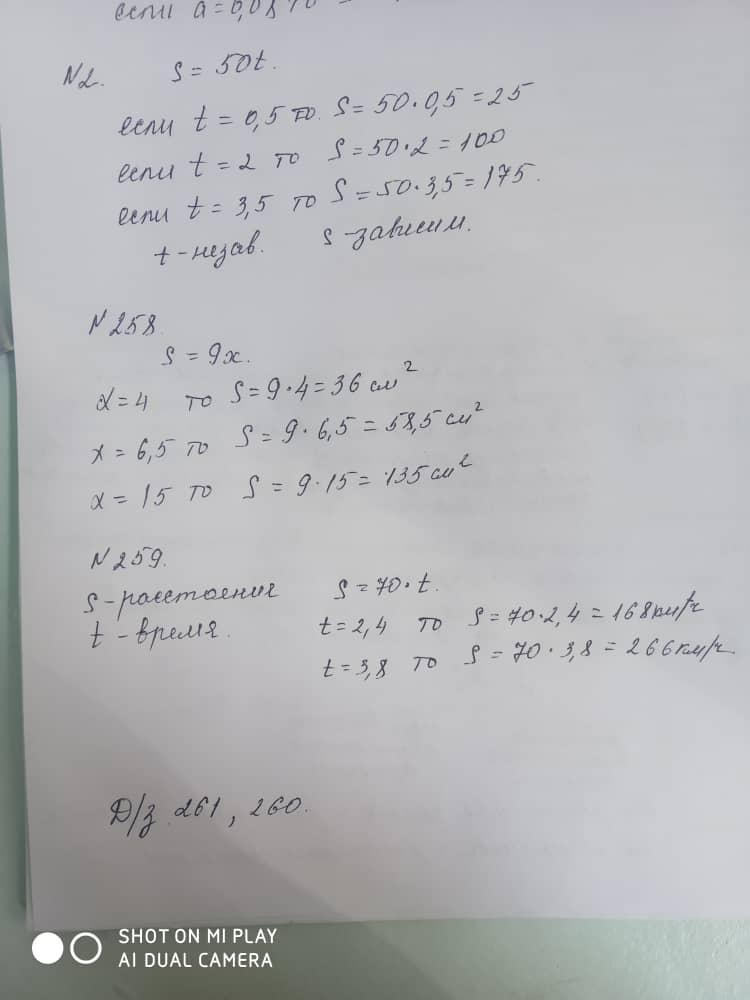 если a = 0,08 то =
N2. S = 50t.
если t = 0,5 то. S = 50·0,5 = 25
если t = 2 то S = 50·2 = 100
если t = 3,5 то S = 50·3,5 = 175.
t - незав. s - зависим.
N 258.
S = 9x.
x = 4 то S = 9·4 = 36 см²
x = 6,5 то S = 9·6,5 = 58,5 см²
x = 15 то S = 9·15 = 135 см²
N 259.
S - расстояния S = 70·t.
t - время. t = 2,4 то S = 70·2,4 = 168 км/ч
t = 3,8 то S = 70·3,8 = 266 км/ч.
Д/з 261, 260.
SHOT ON MI PLAY
AI DUAL CAMERA